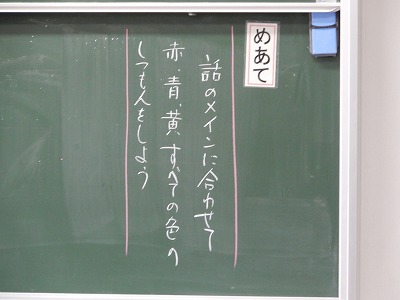 めあて
話のメインに合わせて
赤、青、黄すべての色の
しつもんをしよう